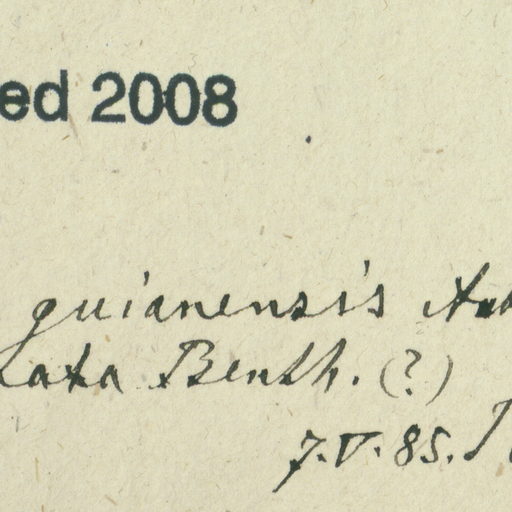 ed 2008
guianensis Aub
lata Benth. (?)
7.V.85.